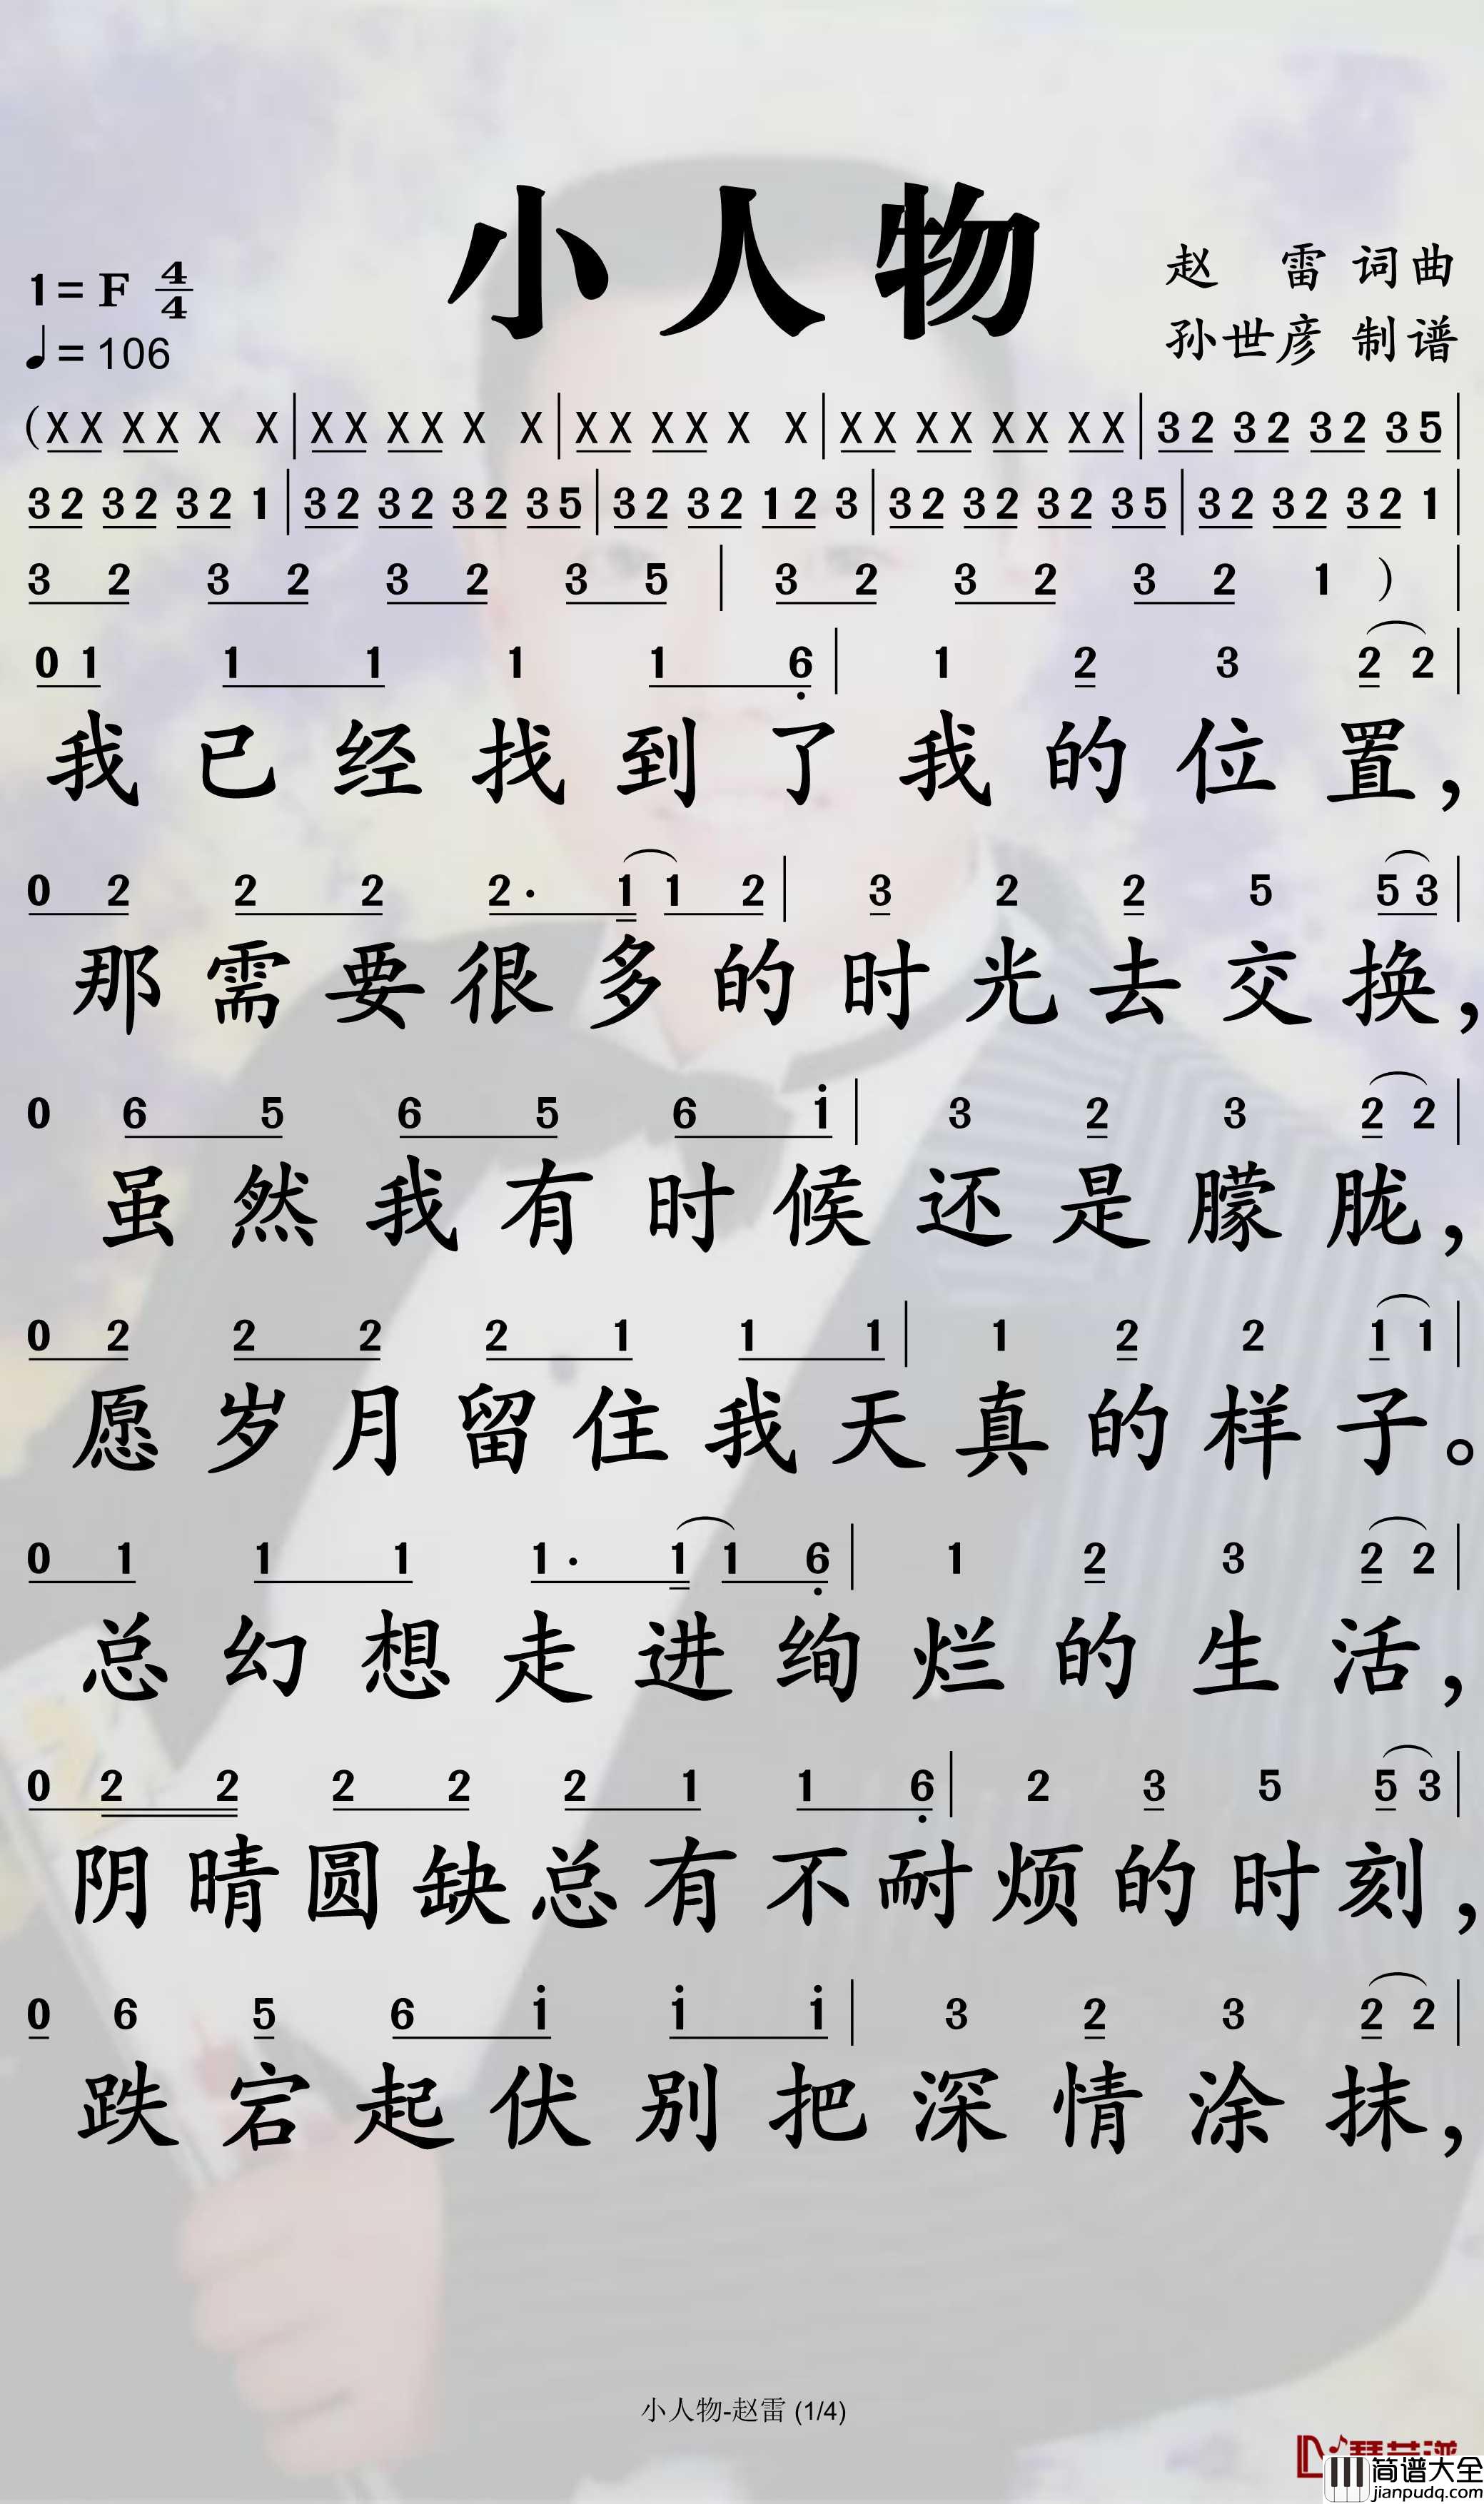 小人物
1=F 4/4
♩=106
赵 雷 词曲
孙世彦 制谱
(X X X X X X | X X X X X X | X X X X X X | X X X X X X X X | 3 2 3 2 3 2 3 5 |
3 2 3 2 3 2 1 | 3 2 3 2 3 2 3 5 | 3 2 3 2 1 2 3 | 3 2 3 2 3 2 3 5 | 3 2 3 2 3 2 1 |
3 2 3 2 3 2 3 5 | 3 2 3 2 3 2 1 ) |
0 1 1 1 1 1 6̣ | 1 2 3 2 2 |
我已经找到了我的位置，
0 2 2 2 2· 1 1 2 | 3 2 2 5 5 3 |
那需要很多的时光去交换，
0 6 5 6 5 6 1̇ | 3 2 3 2 2 |
虽然我有时候还是朦胧，
0 2 2 2 2 1 1 1 | 1 2 2 1 1 |
愿岁月留住我天真的样子。
0 1 1 1 1· 1 1 6̣ | 1 2 3 2 2 |
总幻想走进绚烂的生活，
0 2 2 2 2 2 1 1 6̣ | 2 3 5 5 3 |
阴晴圆缺总有不耐烦的时刻，
0 6 5 6 1̇ 1̇ 1̇ | 3 2 3 2 2 |
跌宕起伏别把深情涂抹，
小人物-赵雷 (1/4)
简谱大全
jianpudq.com